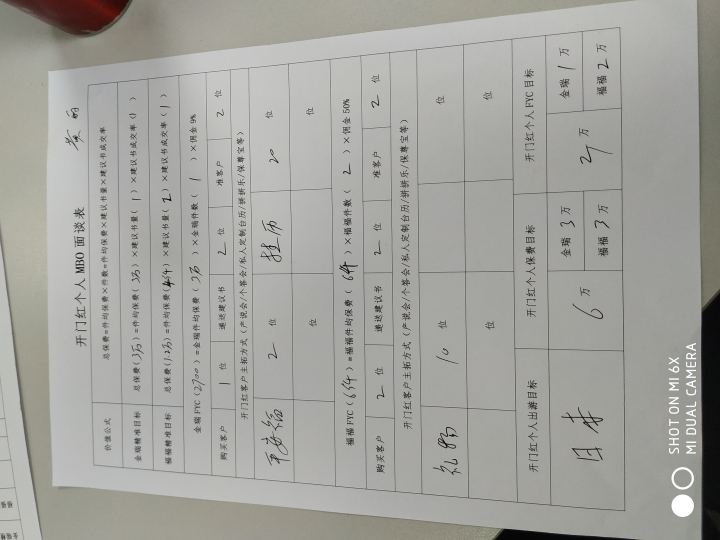 开门红个人MBO面谈表
价值公式 总保费=件均保费×件数=件均保费×建议书量×建议书成交率
金瑞精准目标 总保费(3万)=件均保费(3万)×建议书量(1)×建议书成交率(1)
福福精准目标 总保费(1.2万)=件均保费(6千)×建议书量(2)×建议书成交率(1)
金瑞FYC(2700)=金瑞件均保费(3万)×金瑞件数(1)×佣金9%
购买客户 1 位 递送建议书 2 位 准客户 2 位
开门红客户主拓方式(产说会/个答会/私人定制台历/拼拼乐/保尊宝等)
平安福 2 位 挂历 20 位
位 位
福福FYC(6千)=福福件均保费(6千)×福福件数(2)×佣金50%
购买客户 2 位 递送建议书 2 位 准客户 2 位
开门红客户主拓方式(产说会/个答会/私人定制台历/拼拼乐/保尊宝等)
礼物 10 位 位
位 位
开门红个人出游目标 开门红个人保费目标 开门红个人FYC目标
日本 6 万 金瑞 3 万 万 金瑞 1 万
福福 3 万 福福 2 万
SHOT ON MI 6X
MI DUAL CAMERA